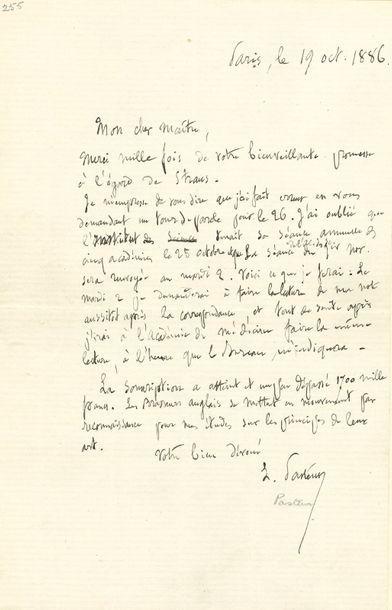 255
Paris, le 19 oct. 1886.
Mon cher maître,
Merci mille fois de votre bienveillante promesse
à l'égard de Straus.
Je m'empresse de vous dire que j'ai fait erreur en vous
demandant un tour de parole pour le 26. J'ai oublié que
l'Institut des Sciences tenait sa séance annuelle des
cinq académies le 25 octobre. La séance du 1er nov.
sera renvoyée au mardi 2. Voici ce que je ferai: Le
mardi 2 je demanderai à faire la lecture de ma note
aussitôt après la correspondance, et tout de suite après
j'irai à l'Académie de médecine faire la même
lecture, à l'heure que le bureau m'indiquera.
La souscription a atteint et un peu dépassé 1700 mille
francs. Les brasseurs anglais se mettent en mouvement par
reconnaissance pour mes études sur les principes de leur
art.
Votre bien dévoué
L. Pasteur
Pasteur